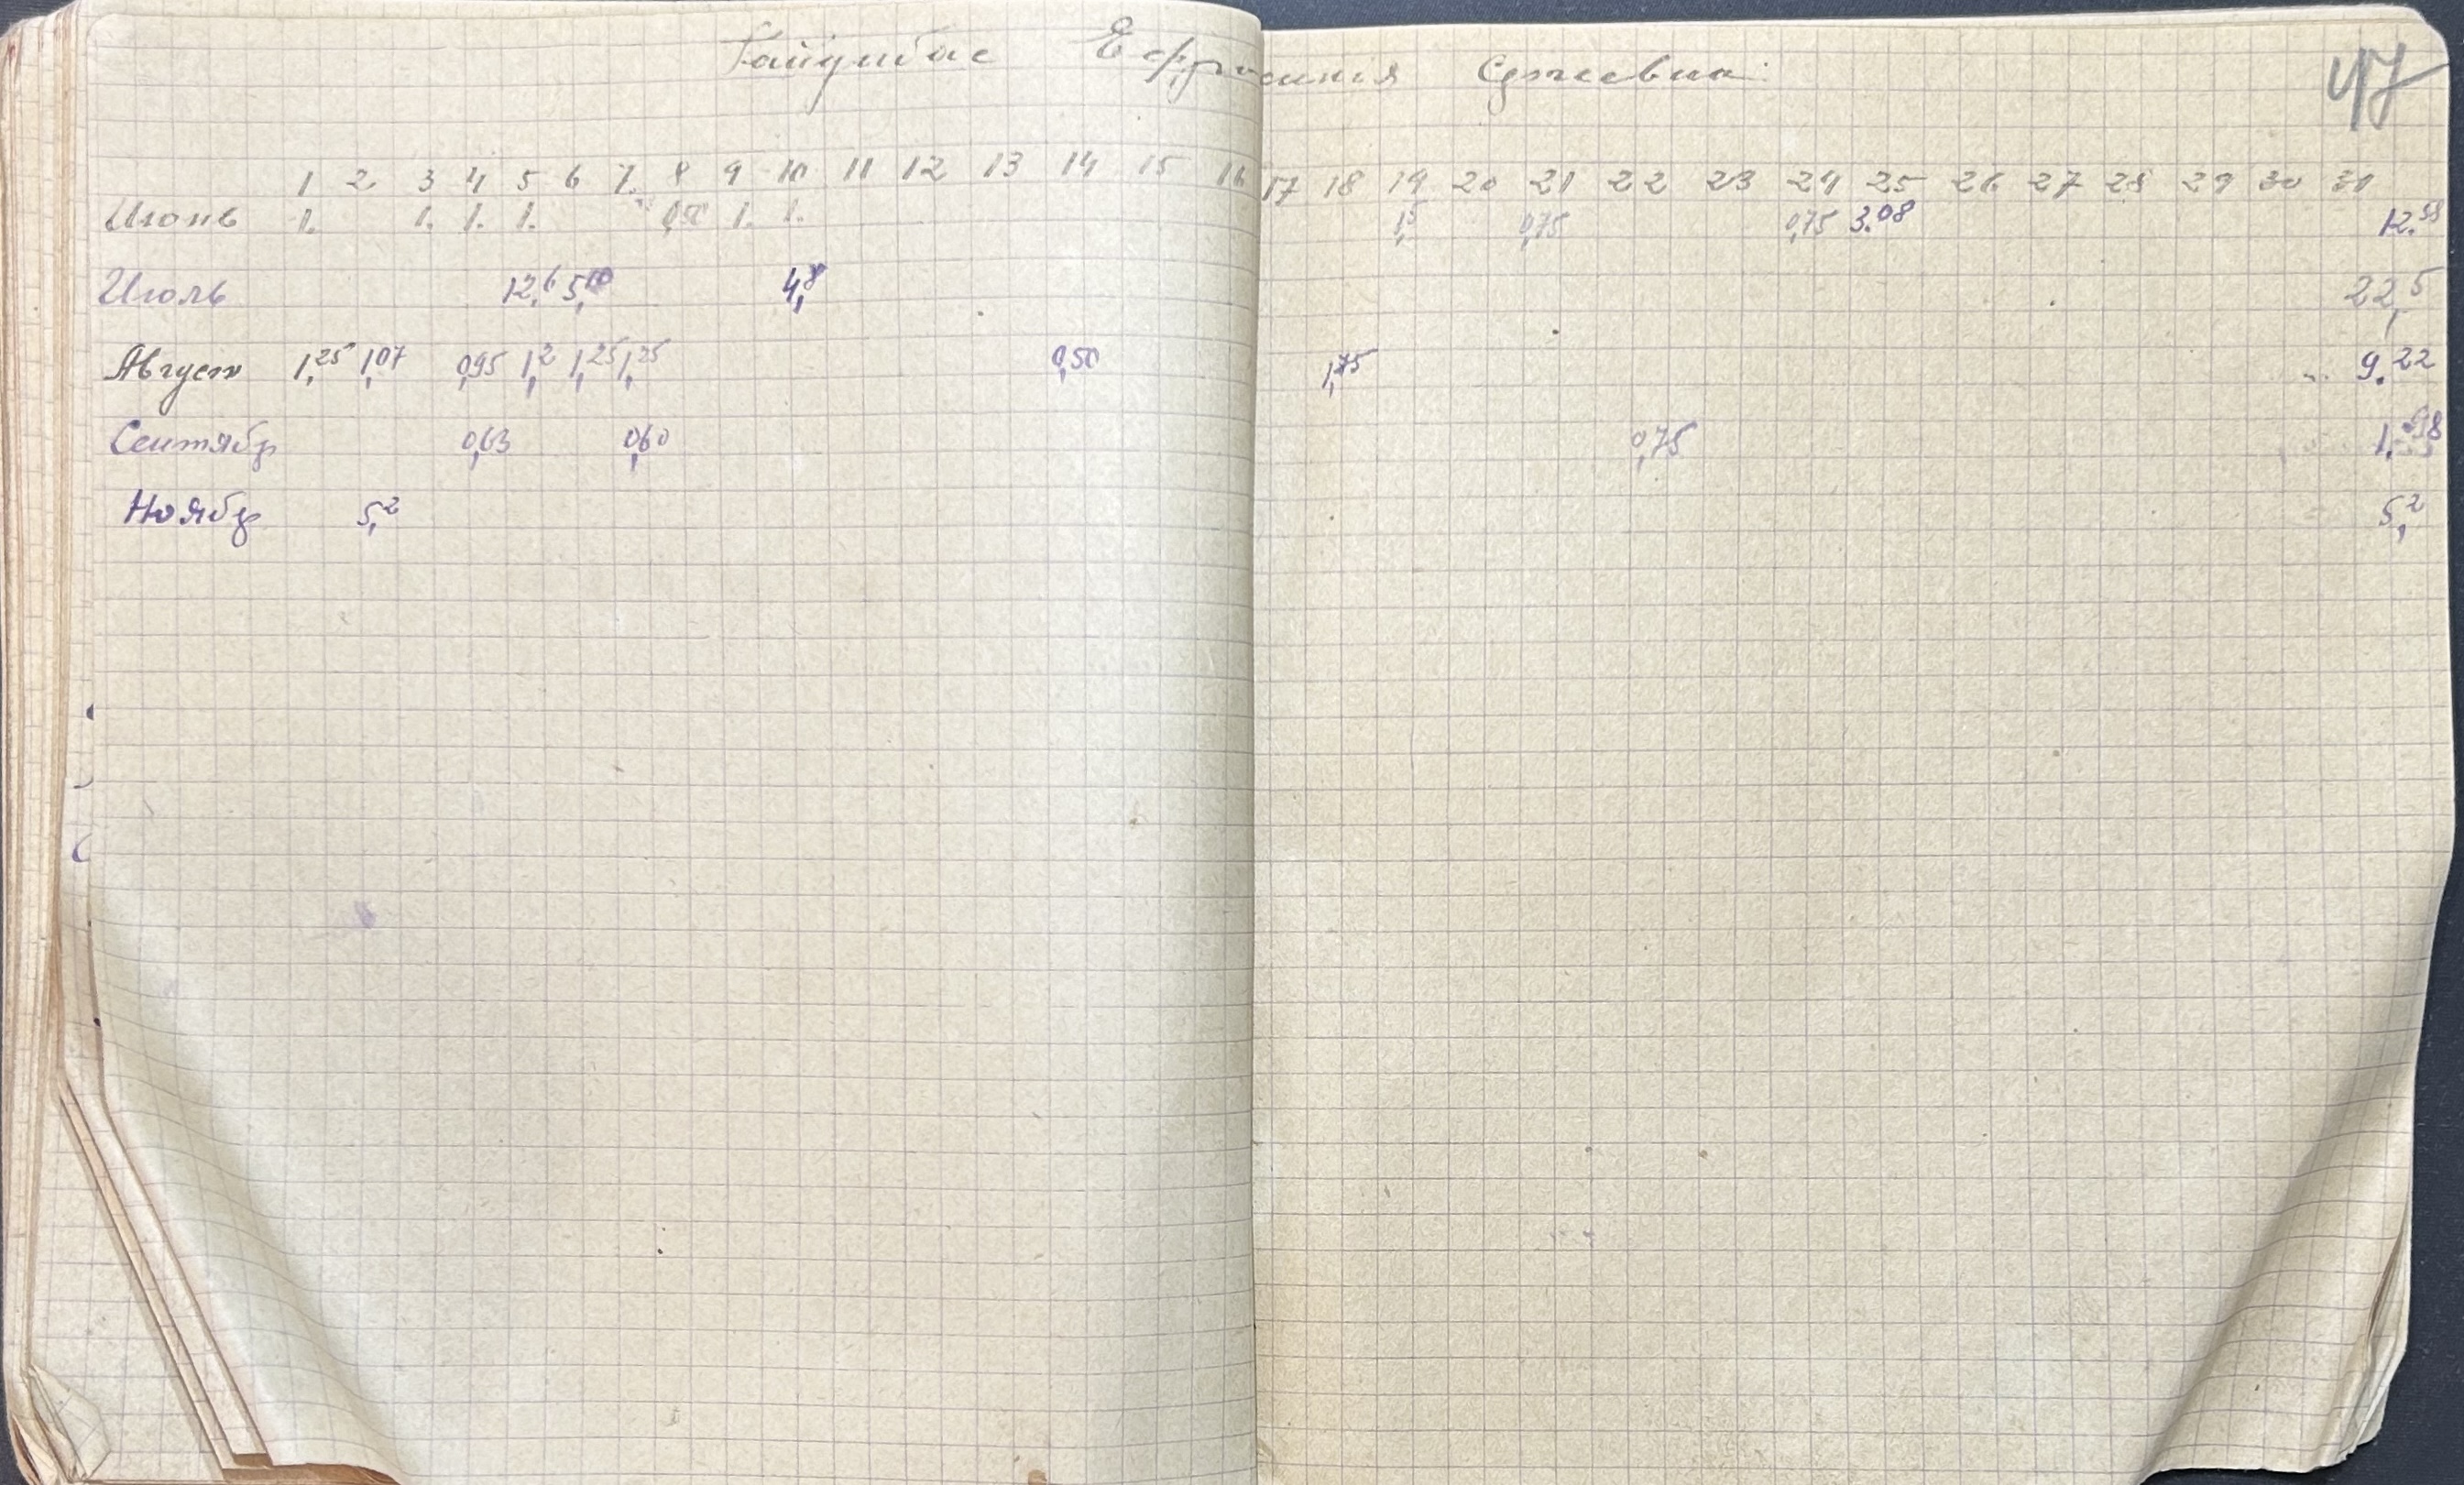 Ефросинія
47
1 2 3 4 5 6 7. 8 9 10 11 12 13 14 15 16 17 18 19 20 21 22 23 24 25 26 27 28 29 30 31
Июнь 1. 1. 1. 1. 0,50 1. 1. 1,5 0,75 0,75 3.08 12.58
Июль 12,6 5,10 4,8 22,5
Август 1,25 1,07 0,95 1,2 1,25 1,25 0,50 1,75 9.22
Сентябр 0,63 0,60 0,75 1.98
Ноябр 5,2 5,2